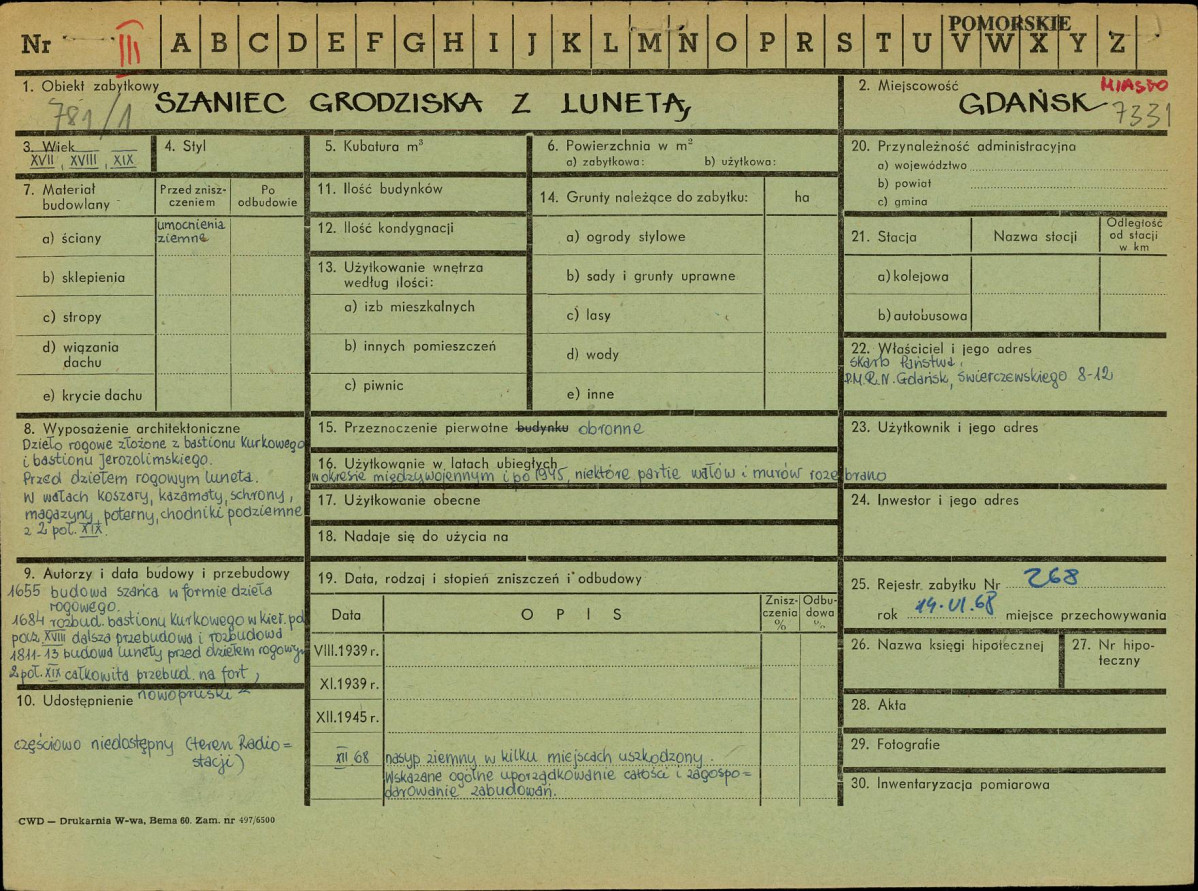 POMORSKIE
Nr III A B C D E F G H I J K L M N O P R S T U V W X Y Z
1. Obiekt zabytkowy
781/1
SZANIEC GRODZISKA Z LUNETĄ
2. Miejscowość
MIASTO
GDAŃSK
7331
3. Wiek
XVII, XVIII, XIX
4. Styl
5. Kubatura m³
6. Powierzchnia w m²
a) zabytkowa: b) użytkowa:
7. Materiał budowlany
Przed znisz-
czeniem
Po
odbudowie
a) ściany
umocnienia
ziemne
b) sklepienia
c) stropy
d) wiązania
dachu
e) krycie dachu
11. Ilość budynków
12. Ilość kondygnacji
13. Użytkowanie wnętrza
według ilości:
a) izb mieszkalnych
b) innych pomieszczeń
c) piwnic
14. Grunty należące do zabytku:
ha
a) ogrody stylowe
b) sady i grunty uprawne
c) lasy
d) wody
e) inne
20. Przynależność administracyjna
a) województwo
b) powiat
c) gmina
21. Stacja
Nazwa stacji
Odległość
od stacji
w km
a) kolejowa
b) autobusowa
22. Właściciel i jego adres
Skarb Państwa,
P.M.R.N. Gdańsk, Świerczewskiego 8-12
8. Wyposażenie architektoniczne
Dzieło rogowe złożone z bastionu Kurkowego
i bastionu Jerozolimskiego.
Przed dziełem rogowym luneta.
W wałach koszary, kazamaty, schrony,
magazyny, poterny, chodniki podziemne
z 2 poł. XIX.
15. Przeznoczenie pierwotne budynku obronne
16. Użytkowanie w latach ubiegłych
w okresie międzywojennym i po 1945, niektóre partie wałów i murów rozebrano
17. Użytkowanie obecne
18. Nadaje się do użycia na
23. Użytkownik i jego adres
24. Inwestor i jego adres
9. Autorzy i data budowy i przebudowy
1655 budowa szańca w formie dzieła
rogowego.
1684 rozbud. bastionu Kurkowego w kier. pd
pocz. XVIII dalsza przebudowa i rozbudowa
1811-13 budowa lunety przed dziełem rogowym
2 poł. XIX całkowita przebud. na fort,
nowopruski
10. Udostępnienie
częściowo niedostępny (teren Radio=
stacji)
19. Data, rodzaj i stopień zniszczeń i odbudowy
Data
OPIS
Znisz-
czenia
%
Odbu-
dowa
%
VIII.1939 r.
XI.1939 r.
XII.1945 r.
XII.68 nasyp ziemny w kilku miejscach uszkodzony.
Wskazane ogólne uporządkowanie całości i zagospo=
darowanie zabudowań.
25. Rejestr. zabytku Nr 268
rok 14.VI.68 miejsce przechowywania
26. Nazwa księgi hipotecznej
27. Nr hipo-
teczny
28. Akta
29. Fotografie
30. Inwentaryzacja pomiarowa
CWD — Drukarnia W-wa, Bema 60. Zam. nr 497/6500